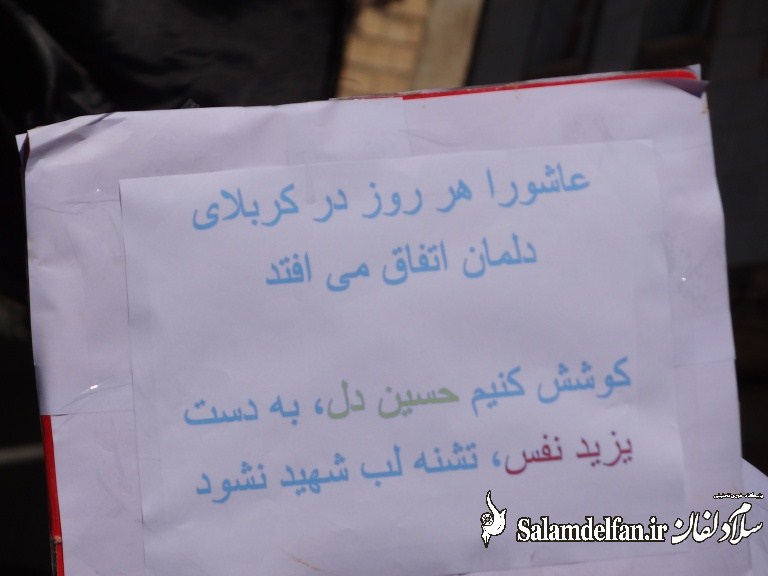 عاشورا هر روز در کربلای
دلمان اتفاق می افتد
کوشش کنیم حسین دل، به دست
یزید نفس، تشنه لب شهید نشود
سلام دلفان Salamdelfan.ir